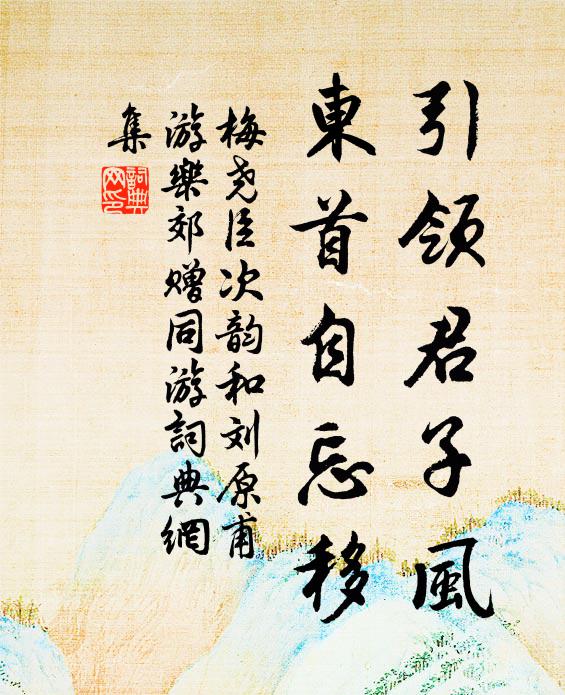 引領君子風
東首自忘移
梅堯臣次韵和刘原甫
游樂郊赠同游詞典網
集
詞典
网印